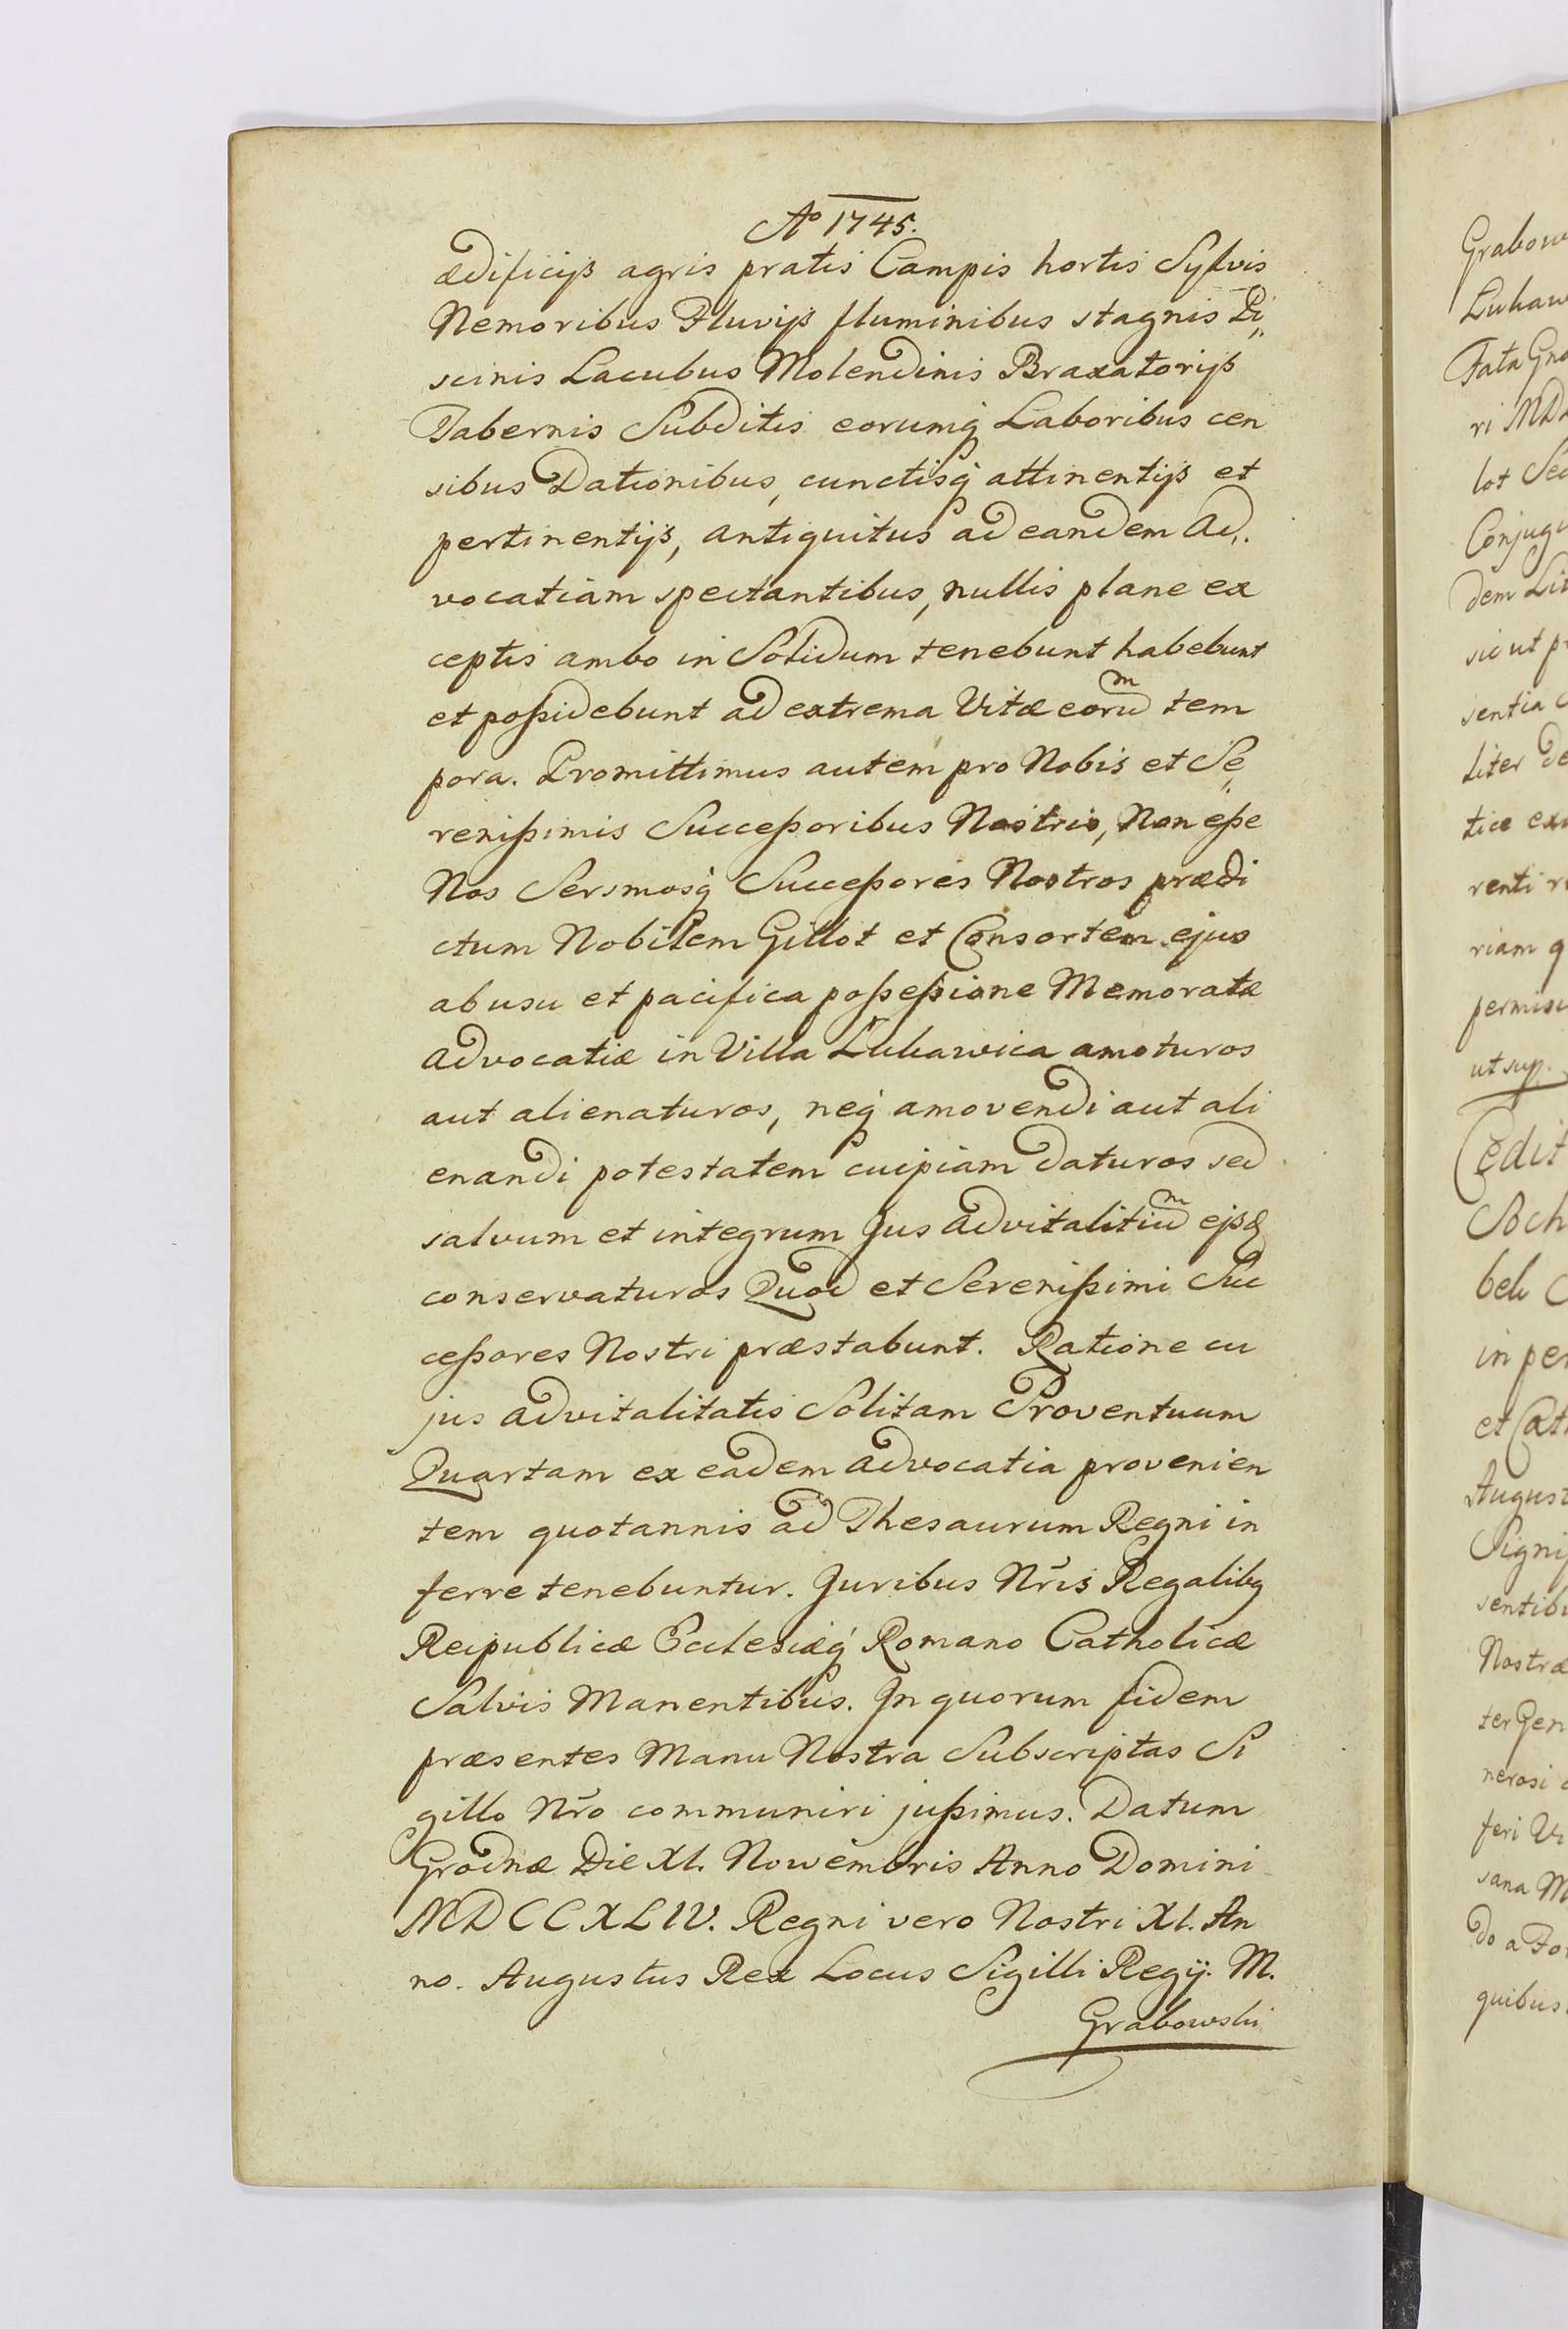 Ao 1745.
ædificijs agris pratis Campis hortis Sylvis
Nemoribus Fluvijs fluminibus stagnis Pi„
scinis Lacubus Molendinis Braxatorijs
Tabernis Subditis eorumq́ Laboribus cen
sibus Dationibus, cunctisq́ attinentijs et
pertinentijs, antiquitus ad eandem Ad„
vocatiam spectantibus, nullis plane ex
ceptis ambo in Solidum tenebunt habebunt
et poßidebunt ad extrema Vitæ eorum tem
pora. Promittimus autem pro Nobis et Se„
renißimis Succeßoribus Nostris, Non eße
Nos Sersmosq́ Succeßores Nostros prædi
ctum Nobilem Gillot et Consortem ejus
ab usu et pacifica poßeßione Memoratæ
advocatiæ in Villa Lukawica amoturos
aut alienaturos, neq́ amovendi aut ali
enandi potestatem cuipiam daturos sed
salvum et integrum Jus advitalitium ejsd
conservaturos Quod et Serenißimi Suc
ceßores Nostri præstabunt. Ratione cu
jus advitalitatis Solitam Proventuum
Quartam ex eadem advocatia provenien
tem quotannis ad Thesaurum Regni in
ferre tenebuntur. Juribus Nr̃is Regalibq
Reipublicæ Ecclesiæq́ Romano Catholicæ
Salvis Manentibus. In quorum fidem
præsentes Manu Nostra Subscriptas Si
gillo Nr̃o communiri jußimus. Datum
Grodnæ Die XI. Nowembris Anno Domini
MDCCXLIV. Regni vero Nostri XI. An
no. Augustus Rex Locus Sigilli Regij. M.
Grabowski
Grabow
Lukaw
Fata Gno
ri MD
lot Sec
Conjugu
dem Lit
sicut p
sentia C
liter de
ticæ ex
renti r
riam q
permis
ut sup.
Cedit
Soch
beli C
in per
et Cat
August
Signi
sentib
Nostræ
ter Gen
nerosi
feri U
sana M
do a Fo
quibus